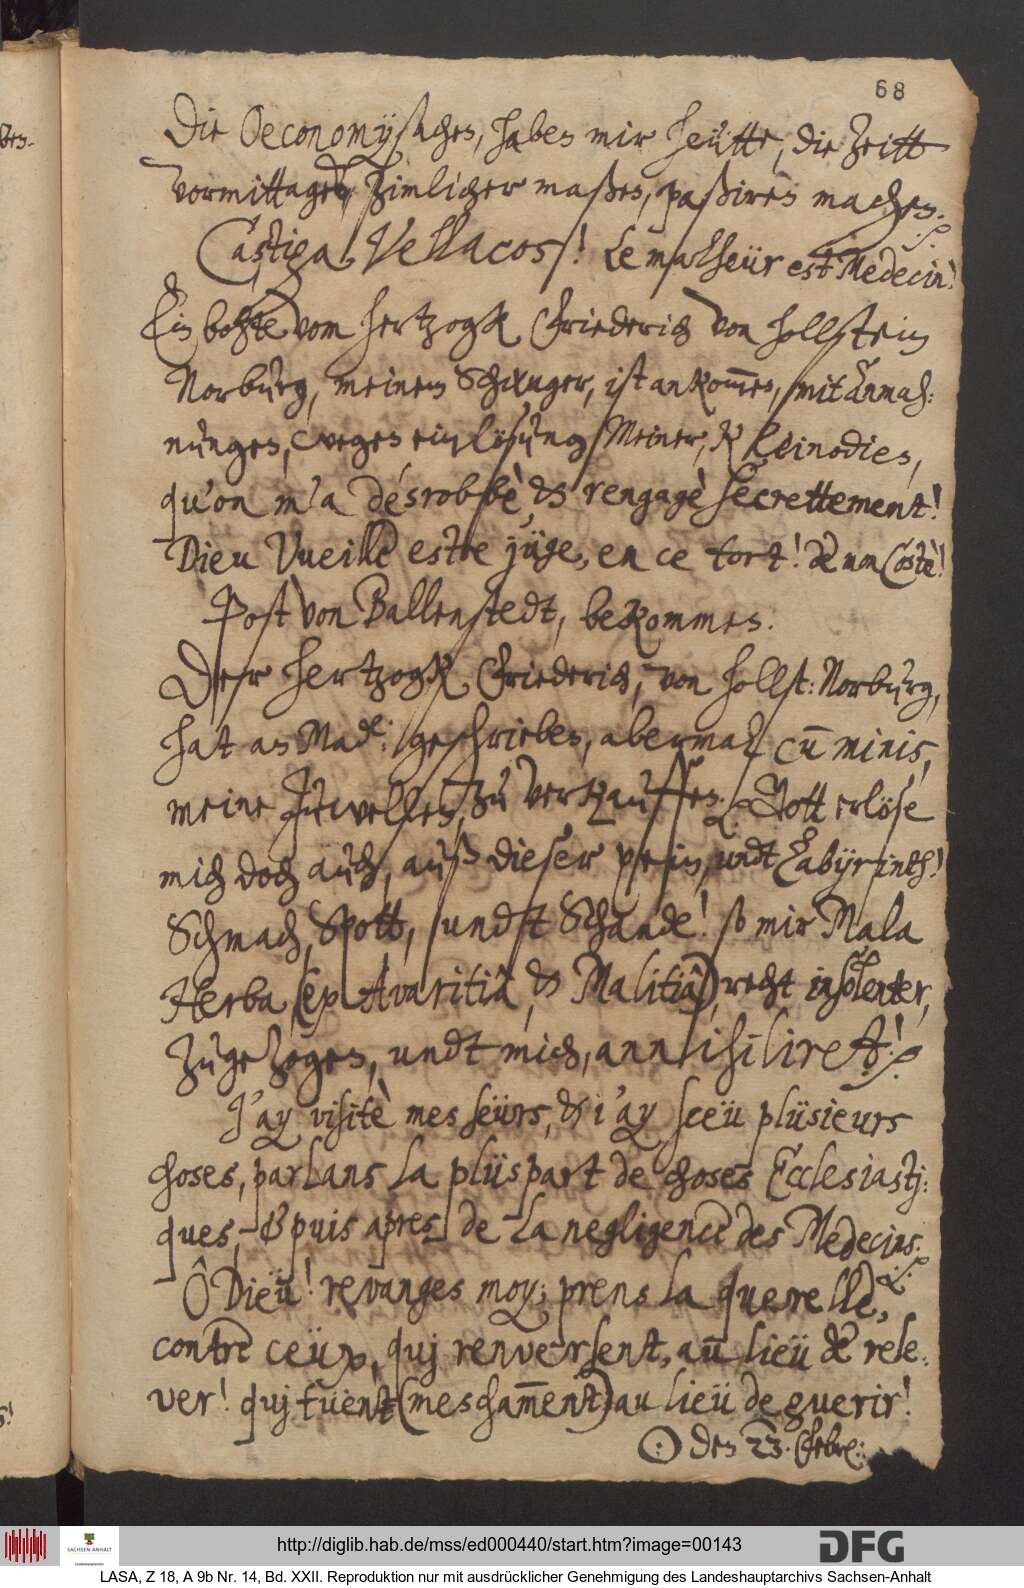 68
Die Oeconomysachen, haben mir heütte, die Zeitt
vormittages, zimlicher maßen, paßiren machen.
Castiga Vellacos! Le malheür est Medecin!
Ein bohte vom Hertzogk Friederich von Hollstein
Norburg, meinem Schwager, ist ankom̅en, mit Anmah:
nungen, wegen einlösung Meiner, Kleinodien,
qu'on m'a désrobbè & rengagè secrettement!
Dieu Vueille estre jüge, en ce tort! de mon Costè!
Post von Ballenstedt, bekommen.
Der Hertzogk Friederich, von Hollst: Norburg,
hat an Made: geschrieben, abermal cu̅ minis,
meine Juwellen, zu verkauffen. Gott erlöse
mich doch auch, auß dieser pein, undt Labyrinth!
Schmach, Spott, undt Schande! so mir Mala
Herba (ex Avaritiâ, & Malitiâ) recht insolenter,
zugezogen, undt mich, annihiliret!
J'ay visitè mes seürs, & i'ay sceü plüsieurs
choses, parlans la plüspart de choses Ecclesiastj:
ques, & puis apres de la negligence des Medecins.
Ô Dieü! revanges moy; prens la querelle,
contre ceüx, quj renversent, au lieü de rele:
ver! quj tüent (mescham̅ent) au lieü de guerir!
☉ den 23. Febr:
http://diglib.hab.de/mss/ed000440/start.htm?image=00143
SACHSEN-ANHALT
DFG
LASA, Z 18, A 9b Nr. 14, Bd. XXII. Reproduktion nur mit ausdrücklicher Genehmigung des Landeshauptarchivs Sachsen-Anhalt